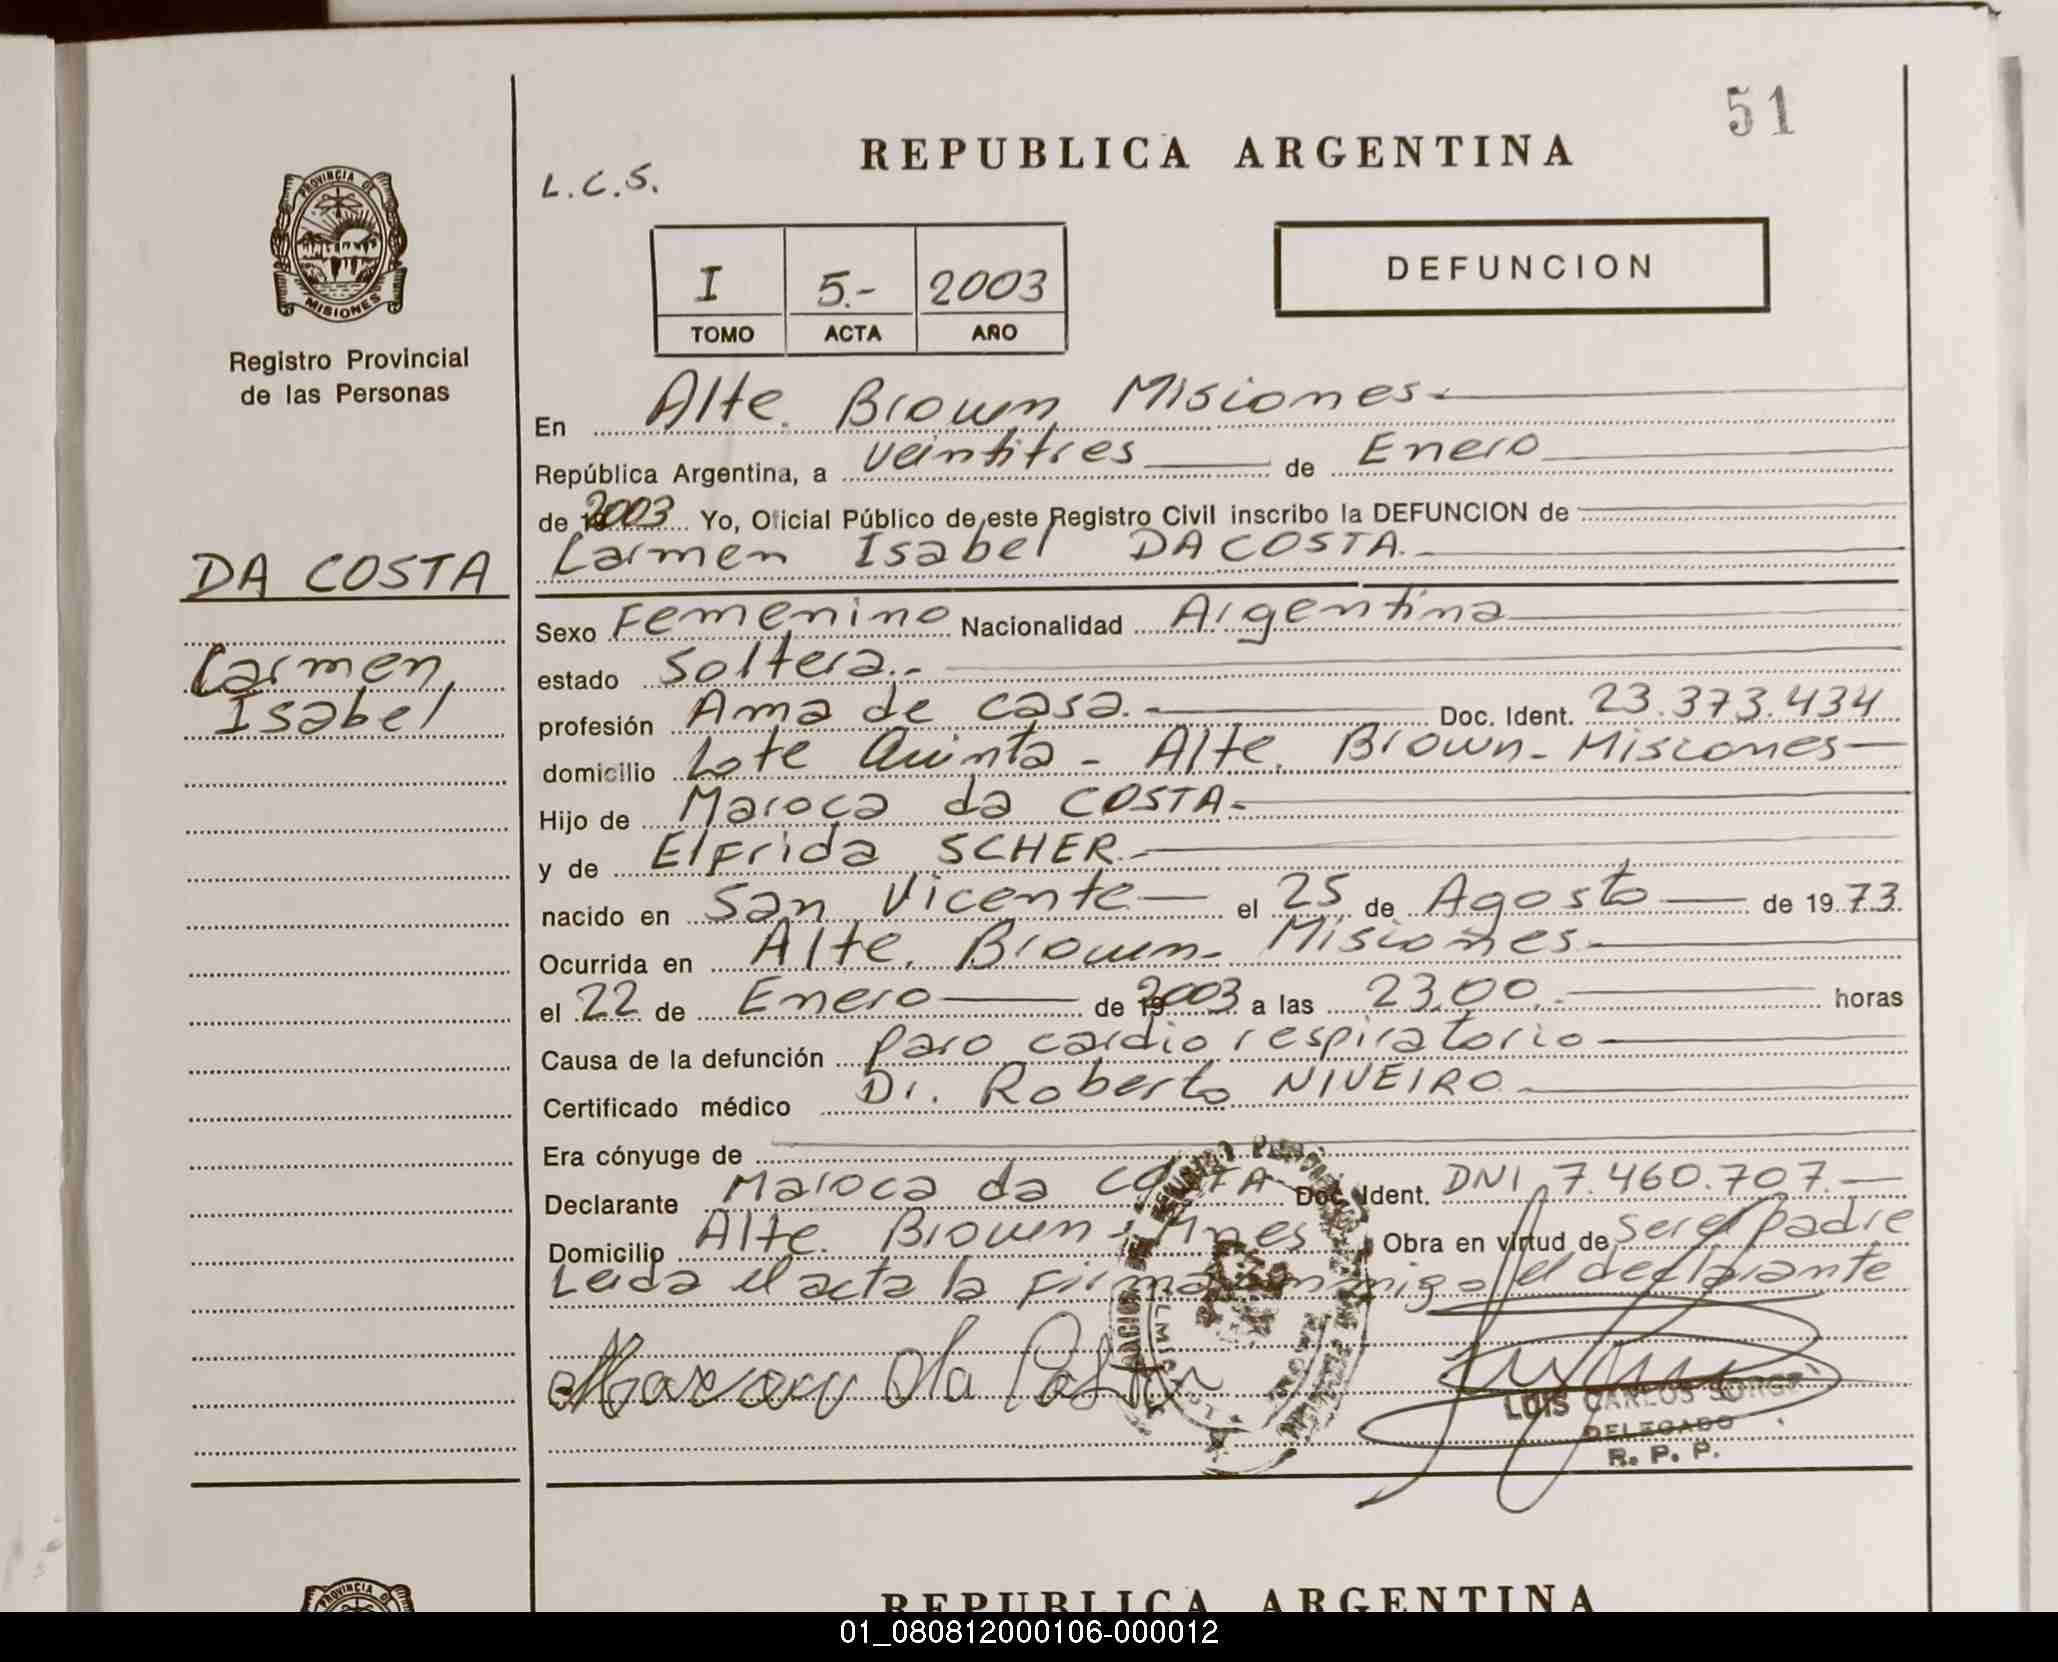 51
REPUBLICA ARGENTINA
L.C.S.
PROVINCIA DE
MISIONES
Registro Provincial
de las Personas
I 5.- 2003
TOMO ACTA AÑO
DEFUNCION
En Alte. Brown Misiones.
República Argentina, a veintitres de Enero
de 2003 Yo, Oficial Público de este Registro Civil inscribo la DEFUNCION de
Carmen Isabel DA COSTA.
DA COSTA
Carmen
Isabel
Sexo Femenino Nacionalidad Argentina
estado Soltera.-
profesión Ama de casa.- Doc. Ident. 23.373.434
domicilio Lote Quinta - Alte. Brown - Misiones
Hijo de Maroca da COSTA-
y de Elfrida SCHER.-
nacido en San Vicente el 25 de Agosto de 1973.
Ocurrida en Alte. Brown - Misiones.
el 22 de Enero de 2003 a las 23,00.- horas
Causa de la defunción Paro cardio respiratorio
Certificado médico Dr. Roberto NIVEIRO
Era cónyuge de
Declarante Maroca da COSTA Doc. Ident. DNI 7.460.707.-
Domicilio Alte. Brown - Mnes Obra en virtud de ser el padre
Leida el acta la firma conmigo el declarante
da Costa
LUIS CARLOS
DELEGADO
R. P. P.
PROVINCIA DE
REPUBLICA ARGENTINA
01_080812000106-000012